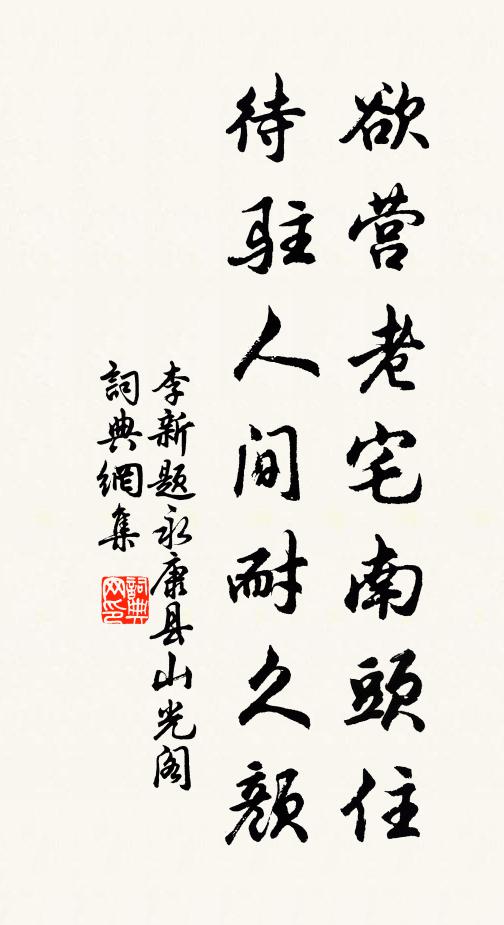 欲营老宅南頭住
待駐人间耐久顏
李新题永康县山光阁
詞典網集
詞典网印